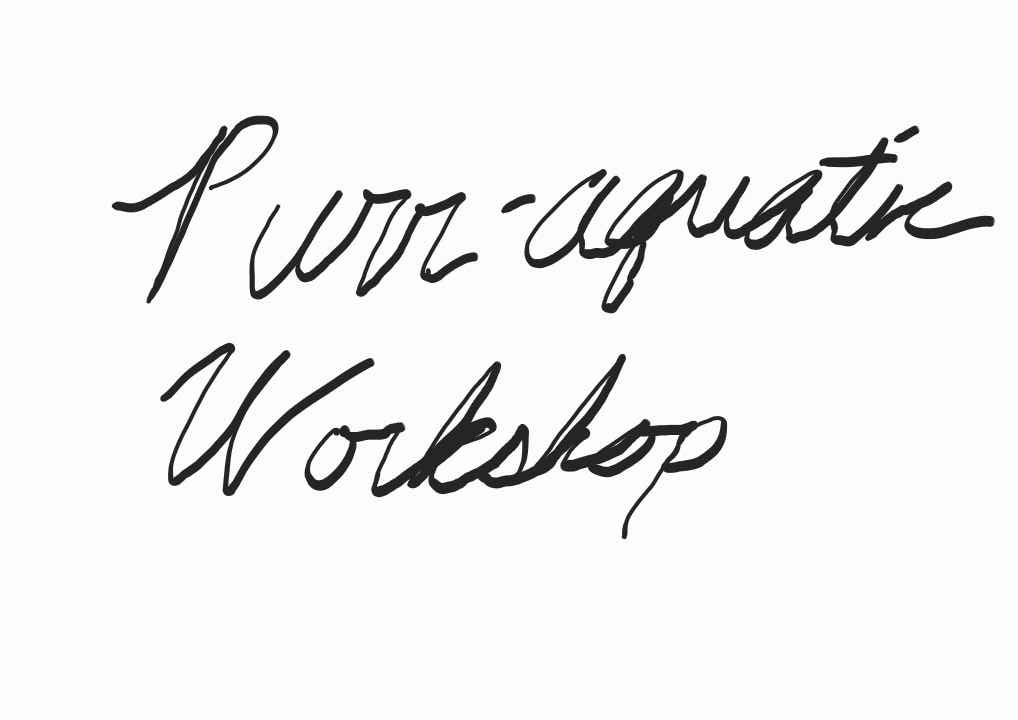 Purr-aquatic
Workshop